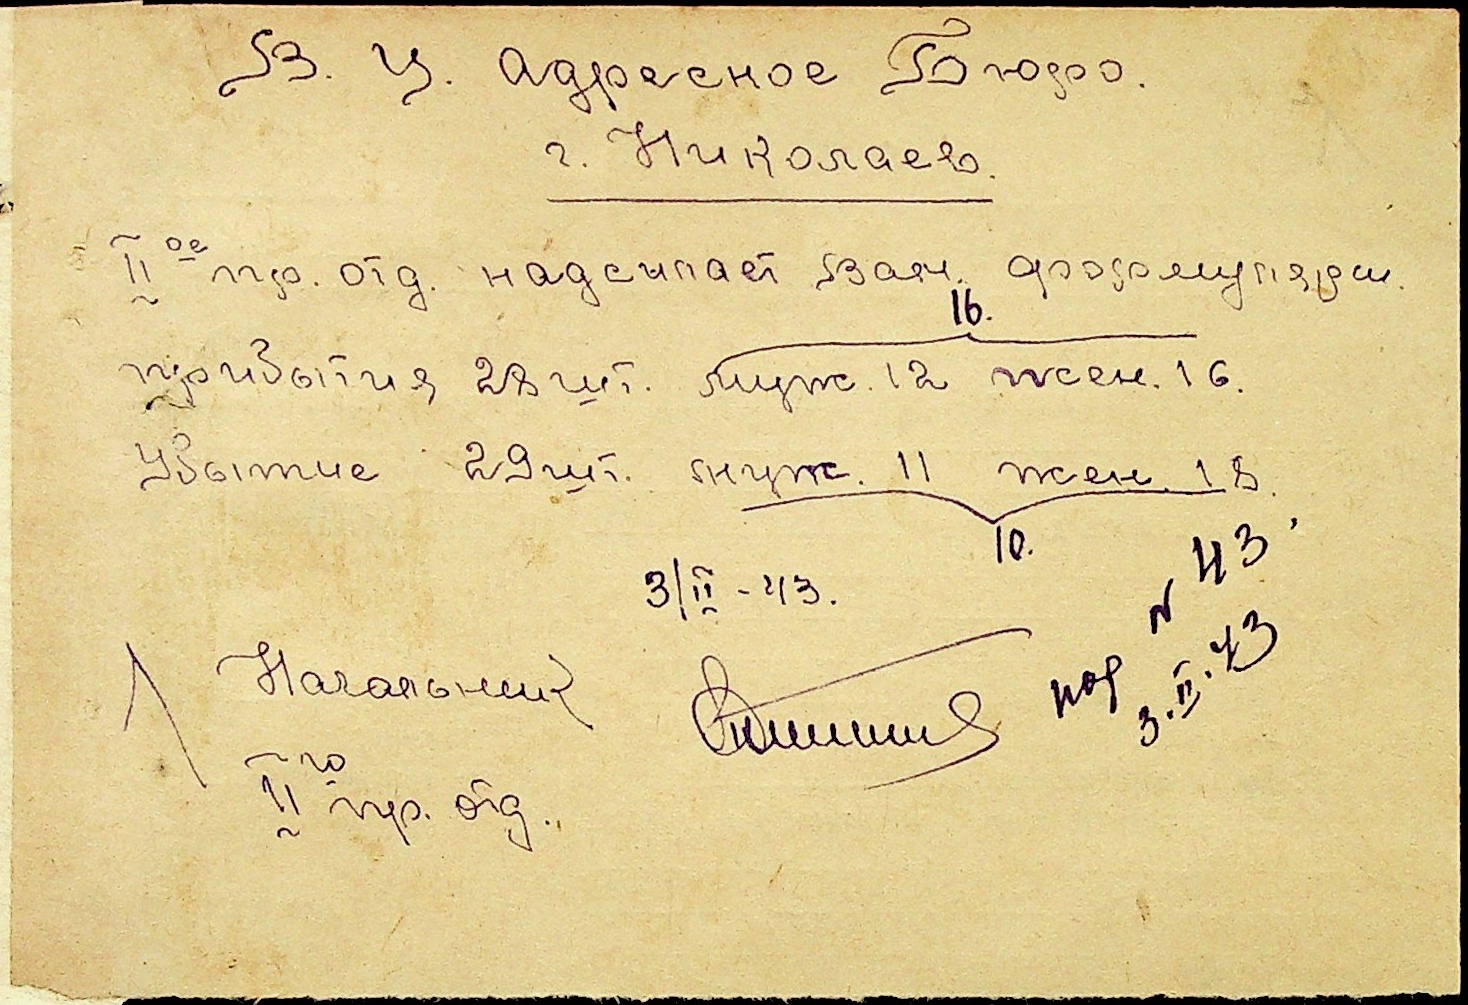 В. Ц. Адресное Бюро.
г. Николаев.
II ое пр. отд. надсилает Вам. формуляри.
16.
прибытия 28 шт. муж. 12 жен. 16.
Убытие 29 шт. муж. 11 жен. 18.
10.
3/II - 43.
N 43.
3.II.43
Начальник
II го пр. отд.